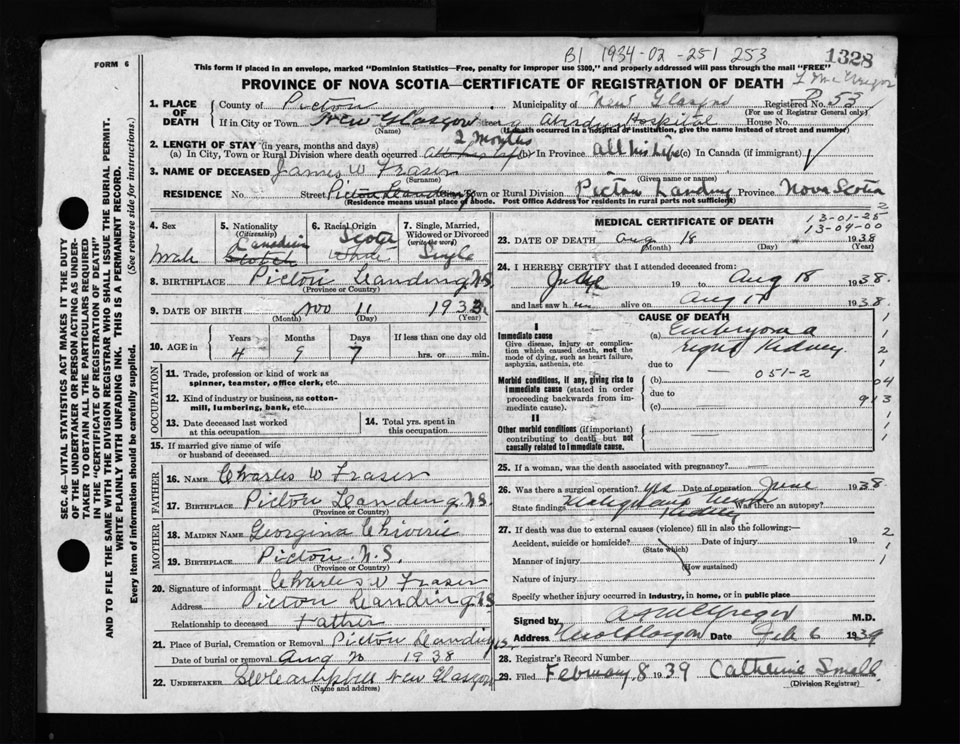 B1 1934-02-251 253
1328
FORM 6
This form if placed in an envelope, marked "Dominion Statistics—Free, penalty for improper use $300," and properly addressed will pass through the mail "FREE"
PROVINCE OF NOVA SCOTIA—CERTIFICATE OF REGISTRATION OF DEATH
1. PLACE OF DEATH County of Pictou Municipality of New Glasgow Registered No. 53
(For use of Registrar General only)
If in City or Town New Glasgow Street Aberdeen Hospital House No.
(Name) (If death occurred in a hospital or institution, give the name instead of street and number)
2. LENGTH OF STAY (in years, months and days) 2 Months
(a) In City, Town or Rural Division where death occurred all his life (b) In Province all his life (c) In Canada (if immigrant)
3. NAME OF DECEASED James W Fraser
(Surname) (Given name or names)
RESIDENCE No. Street Pictou Landing Town or Rural Division Pictou Landing Province Nova Scotia
(Residence means usual place of abode. Post Office Address for residents in rural parts not sufficient)
4. Sex Male
5. Nationality (Citizenship) Canadian Scotch
6. Racial Origin Scotch White
7. Single, Married, Widowed or Divorced (write the word) Single
8. BIRTHPLACE Pictou Landing N.S.
(Province or Country)
9. DATE OF BIRTH Nov 11 1933
(Month) (Day) (Year)
10. AGE in Years 4 Months 9 Days 7 If less than one day old hrs. or min.
OCCUPATION
11. Trade, profession or kind of work as spinner, teamster, office clerk, etc.
12. Kind of industry or business, as cotton-mill, lumbering, bank, etc.
13. Date deceased last worked at this occupation
14. Total yrs. spent in this occupation
15. If married give name of wife or husband of deceased
FATHER
16. NAME Charles W Fraser
17. BIRTHPLACE Pictou Landing N.S.
(Province or Country)
MOTHER
18. MAIDEN NAME Georgina Chiverie
19. BIRTHPLACE Pictou N.S.
(Province or Country)
20. Signature of informant Charles W Fraser
Address Pictou Landing N.S
Relationship to deceased Father
21. Place of Burial, Cremation or Removal Pictou Landing N.S.
Date of burial or removal Aug 20 1938
22. UNDERTAKER New Glasgow
(Name and address)
MEDICAL CERTIFICATE OF DEATH
13-01-25
13-04-00
23. DATE OF DEATH Aug 18 1938
(Month) (Day) (Year)
24. I HEREBY CERTIFY that I attended deceased from:
July 19 to Aug 18 1938
and last saw h im alive on Aug 17 1938
CAUSE OF DEATH
I
Immediate cause (a) Embryoma
Give disease, injury or complication which caused death, not the mode of dying, such as heart failure, asphyxia, asthenia, etc.
right Kidney
due to
Morbid conditions, if any, giving rise to immediate cause (stated in order proceeding backwards from immediate cause).
(b) 051-2
due to
(c)
II
Other morbid conditions (if important) contributing to death but not causally related to immediate cause.
04
913
25. If a woman, was the death associated with pregnancy?
26. Was there a surgical operation? yes Date of operation June 1938
State findings Malignant Kidney Was there an autopsy?
27. If death was due to external causes (violence) fill in also the following:—
Accident, suicide or homicide? Date of injury 19
(State which)
Manner of injury
(How sustained)
Nature of injury
Specify whether injury occurred in industry, in home, or in public place
Signed by M.D.
Address New Glasgow Date Feb 6 1939
28. Registrar's Record Number
29. Filed February 8 1939 Catherine Small
(Division Registrar)
SEC. 46—VITAL STATISTICS ACT MAKES IT THE DUTY
OF THE UNDERTAKER OR PERSON ACTING AS UNDERTAKER TO OBTAIN ALL THE PARTICULARS REQUIRED
IN THE "CERTIFICATE OF REGISTRATION OF DEATH"
AND TO FILE THE SAME WITH THE DIVISION REGISTRAR WHO SHALL ISSUE THE BURIAL PERMIT.
WRITE PLAINLY WITH UNFADING INK. THIS IS A PERMANENT RECORD.
Every item of information should be carefully supplied. (See reverse side for instructions.)